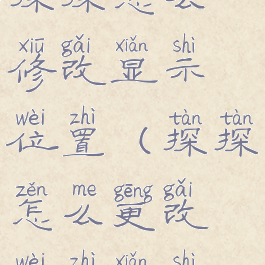 xiū gǎi xiǎn shì
修改显示
wèi zhì tàn tàn
位置（探探
zěn me gēng gǎi
怎么更改
wèi zhì xiǎn shì